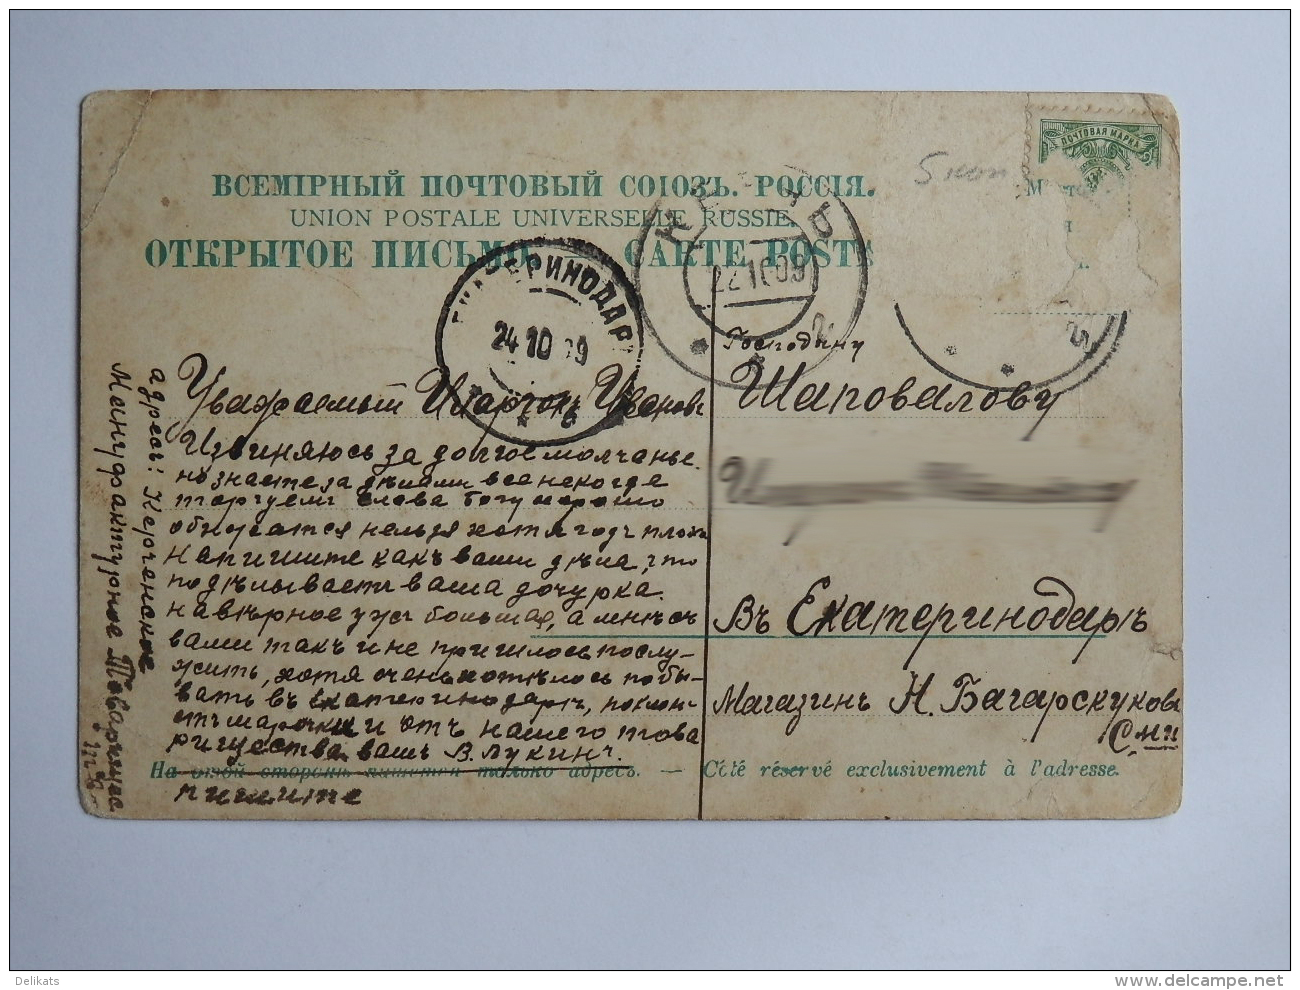 ПОЧТОВАЯ МАРКА
5 коп
ВСЕМІРНЫЙ ПОЧТОВЫЙ СОЮЗЪ. РОССІЯ.
UNION POSTALE UNIVERSELLE. RUSSIE.
ОТКРЫТОЕ ПИСЬМО. — CARTE POSTA
ЕКАТЕРИНОДАР
24 10 09
КЕРЧЬ
22 10 09
Уважаемый
Извиняюсь за долгое молчанье.
но знаете за дѣлами все некогде
торгуем слава богу хорошо
обижатся нельзя хотя годъ плохъ
Напишите какъ ваши дѣла, что
подѣлываетъ ваша дочурка.
навѣрное ужъ большая, а мнѣ съ
вами такъ и не пришлось послу-
жить, хотя очень хотѣлось побы-
вать въ Екатеринодарѣ, поклон
отъ марочки и отъ нашего това
рищества вашъ В. Лукинъ.
пишите
адресъ: Керченское
Мануфактурное Товарищество
Господину
Шаповалову
Въ Екатеринодарѣ
Магазинъ Н. Багарсуковъ
На этой сторонѣ пишется только адресъ. — Côté réservé exclusivement à l'adresse.
Delikats
www.delcampe.net